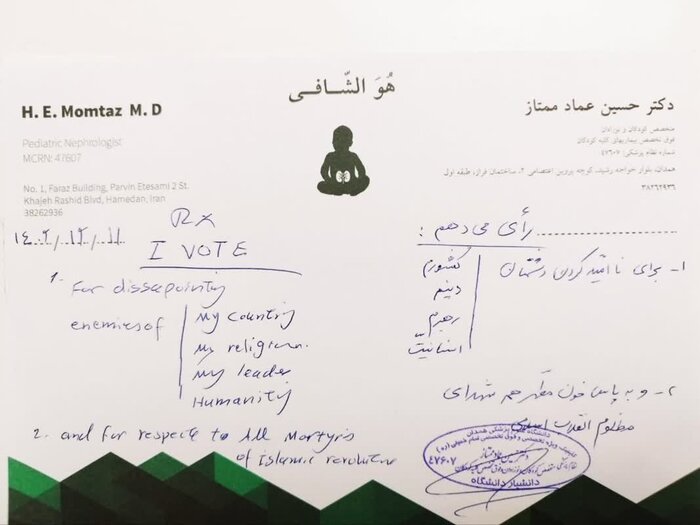 هُوَ الشّافی
H. E. Momtaz M. D
Pediatric Nephrologist
MCRN: 47607
No. 1, Faraz Building, Parvin Etesami 2 St.
Khajeh Rashid Blvd, Hamedan, Iran
38262936
دکتر حسین عماد ممتاز
متخصص کودکان و نوزادان
فوق تخصص بیماریهای کلیه کودکان
شماره نظام پزشکی: ۴۷۶۰۷
همدان، بلوار خواجه رشید، کوچه پروین اعتصامی ۲، ساختمان فراز، طبقه اول
۳۸۲۶۲۹۳۶
۱۴۰۲/۱۲/۱۱
RX
I VOTE
1- For disseapointing
enemies of
My country
My religion.
My leader
Humanity
2. and for respect to All Martyrs
of Islamic revolution
رأی می دهم :
۱- برای نا امید کردن دشمنان
کشورم
دینم
رهبرم
انسانیت
۲- و به پاس خون مطهر همه شهدای
مظلوم انقلاب اسلامی
دانشگاه علوم پزشکی همدان
دکتر حسین عماد ممتاز
۴۷۶۰۷
دانشیار دانشگاه